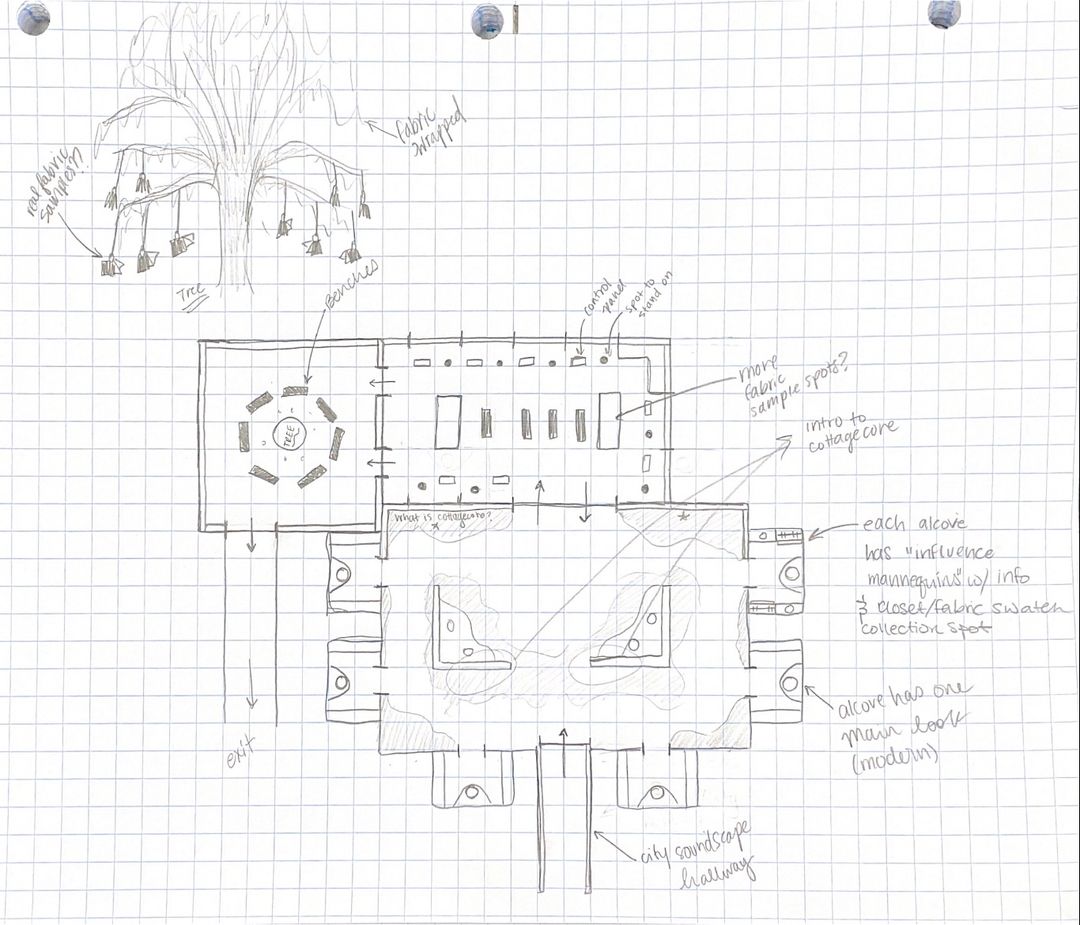 fabric
wrapped
real fabric
samples??
Tree
Benches
control
panel
spot to
stand on
more
fabric
sample spots?
intro to
cottagecore
TREE
What is cottagecore?
*
*
each alcove
has "influence
mannequins" w/ info
& closet/fabric swatch
collection spot
alcove has one
main look
(modern)
exit
city soundscape
hallway